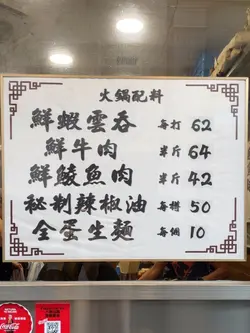 火鍋配料
鮮蝦雲吞 每打 62
鮮牛肉 半斤 64
鮮鯪魚肉 半斤 42
秘制辣椒油 每樽 50
全蛋生麵 每個 10
Coca-Cola